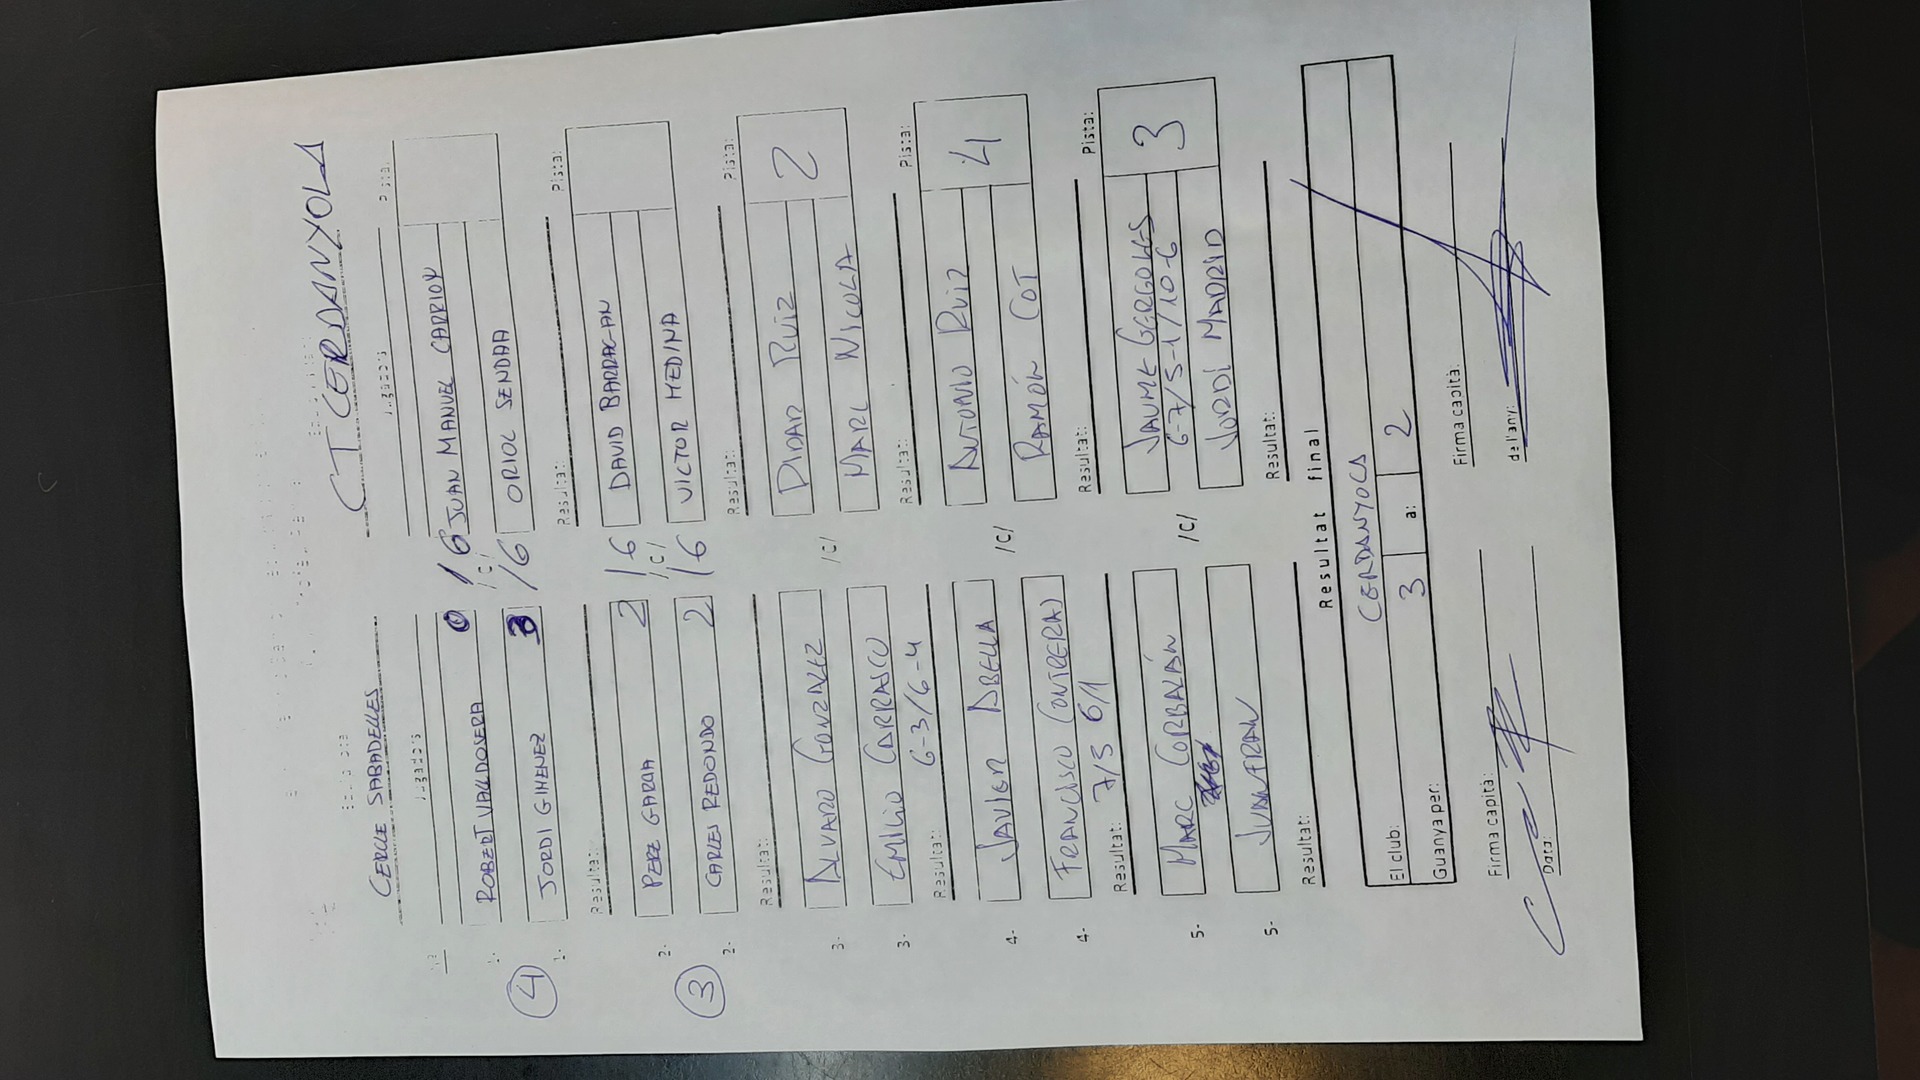 CERCLE SABADELLES CT CERDANYOLA
Jugadors Jugadors Pista:
1- ROBERT VALLDOSERA 0 / 6 JUAN MANUEL CARRION
/C/
4
1- JORDI GIMENEZ 3 / 6 ORIOL SENDRA
Resultat: Resultat: Pista:
2- PERE GARCIA 2 / 6 DAVID BARRAGAN
/C/
3
2- CARLES REDONDO 2 / 6 VICTOR MEDINA
Resultat: Resultat: Pista:
3- ALVARO GONZALEZ DIDAR RUIZ 2
/C/
3- EMILIO CARRASCO MARC NICOLA
Resultat: 6-3/6-4 Resultat: Pista:
4- JAVIER ABELLA ANTONIO RUIZ 4
/C/
4- FRANCISCO CONTRERAS RAMÓN COT
Resultat: 7/5 6/1 Resultat: Pista:
5- MARC CORBALÁN JAUME 3
/C/ 6-7/5-1/10-6
5- JUANFRAN JORDI MADRID
Resultat: Resultat:
Resultat final
El club: CERDANYOLA
Guanya per: 3 a: 2
Firma capità: Firma capità:
Data: de l'any: